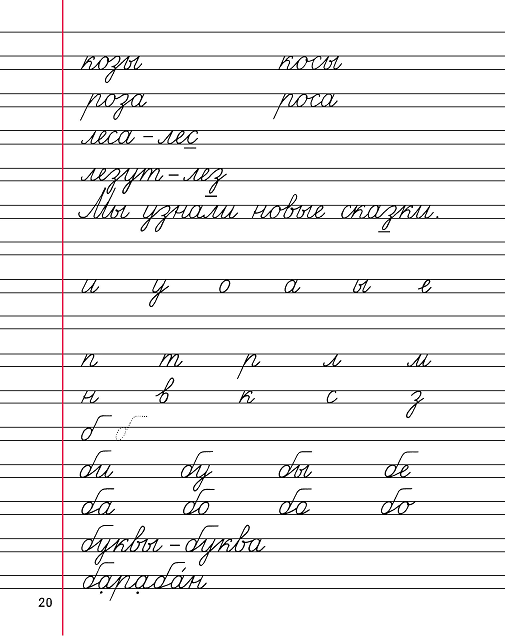 козы косы
роза роса
леса – лес
лезут – лез
Мы узнали новые сказки.
и у о а ы е
п т р л м
н в к с з
б б
би бу бы бе
ба бо ба бо
буквы – буква
бараба́н
20